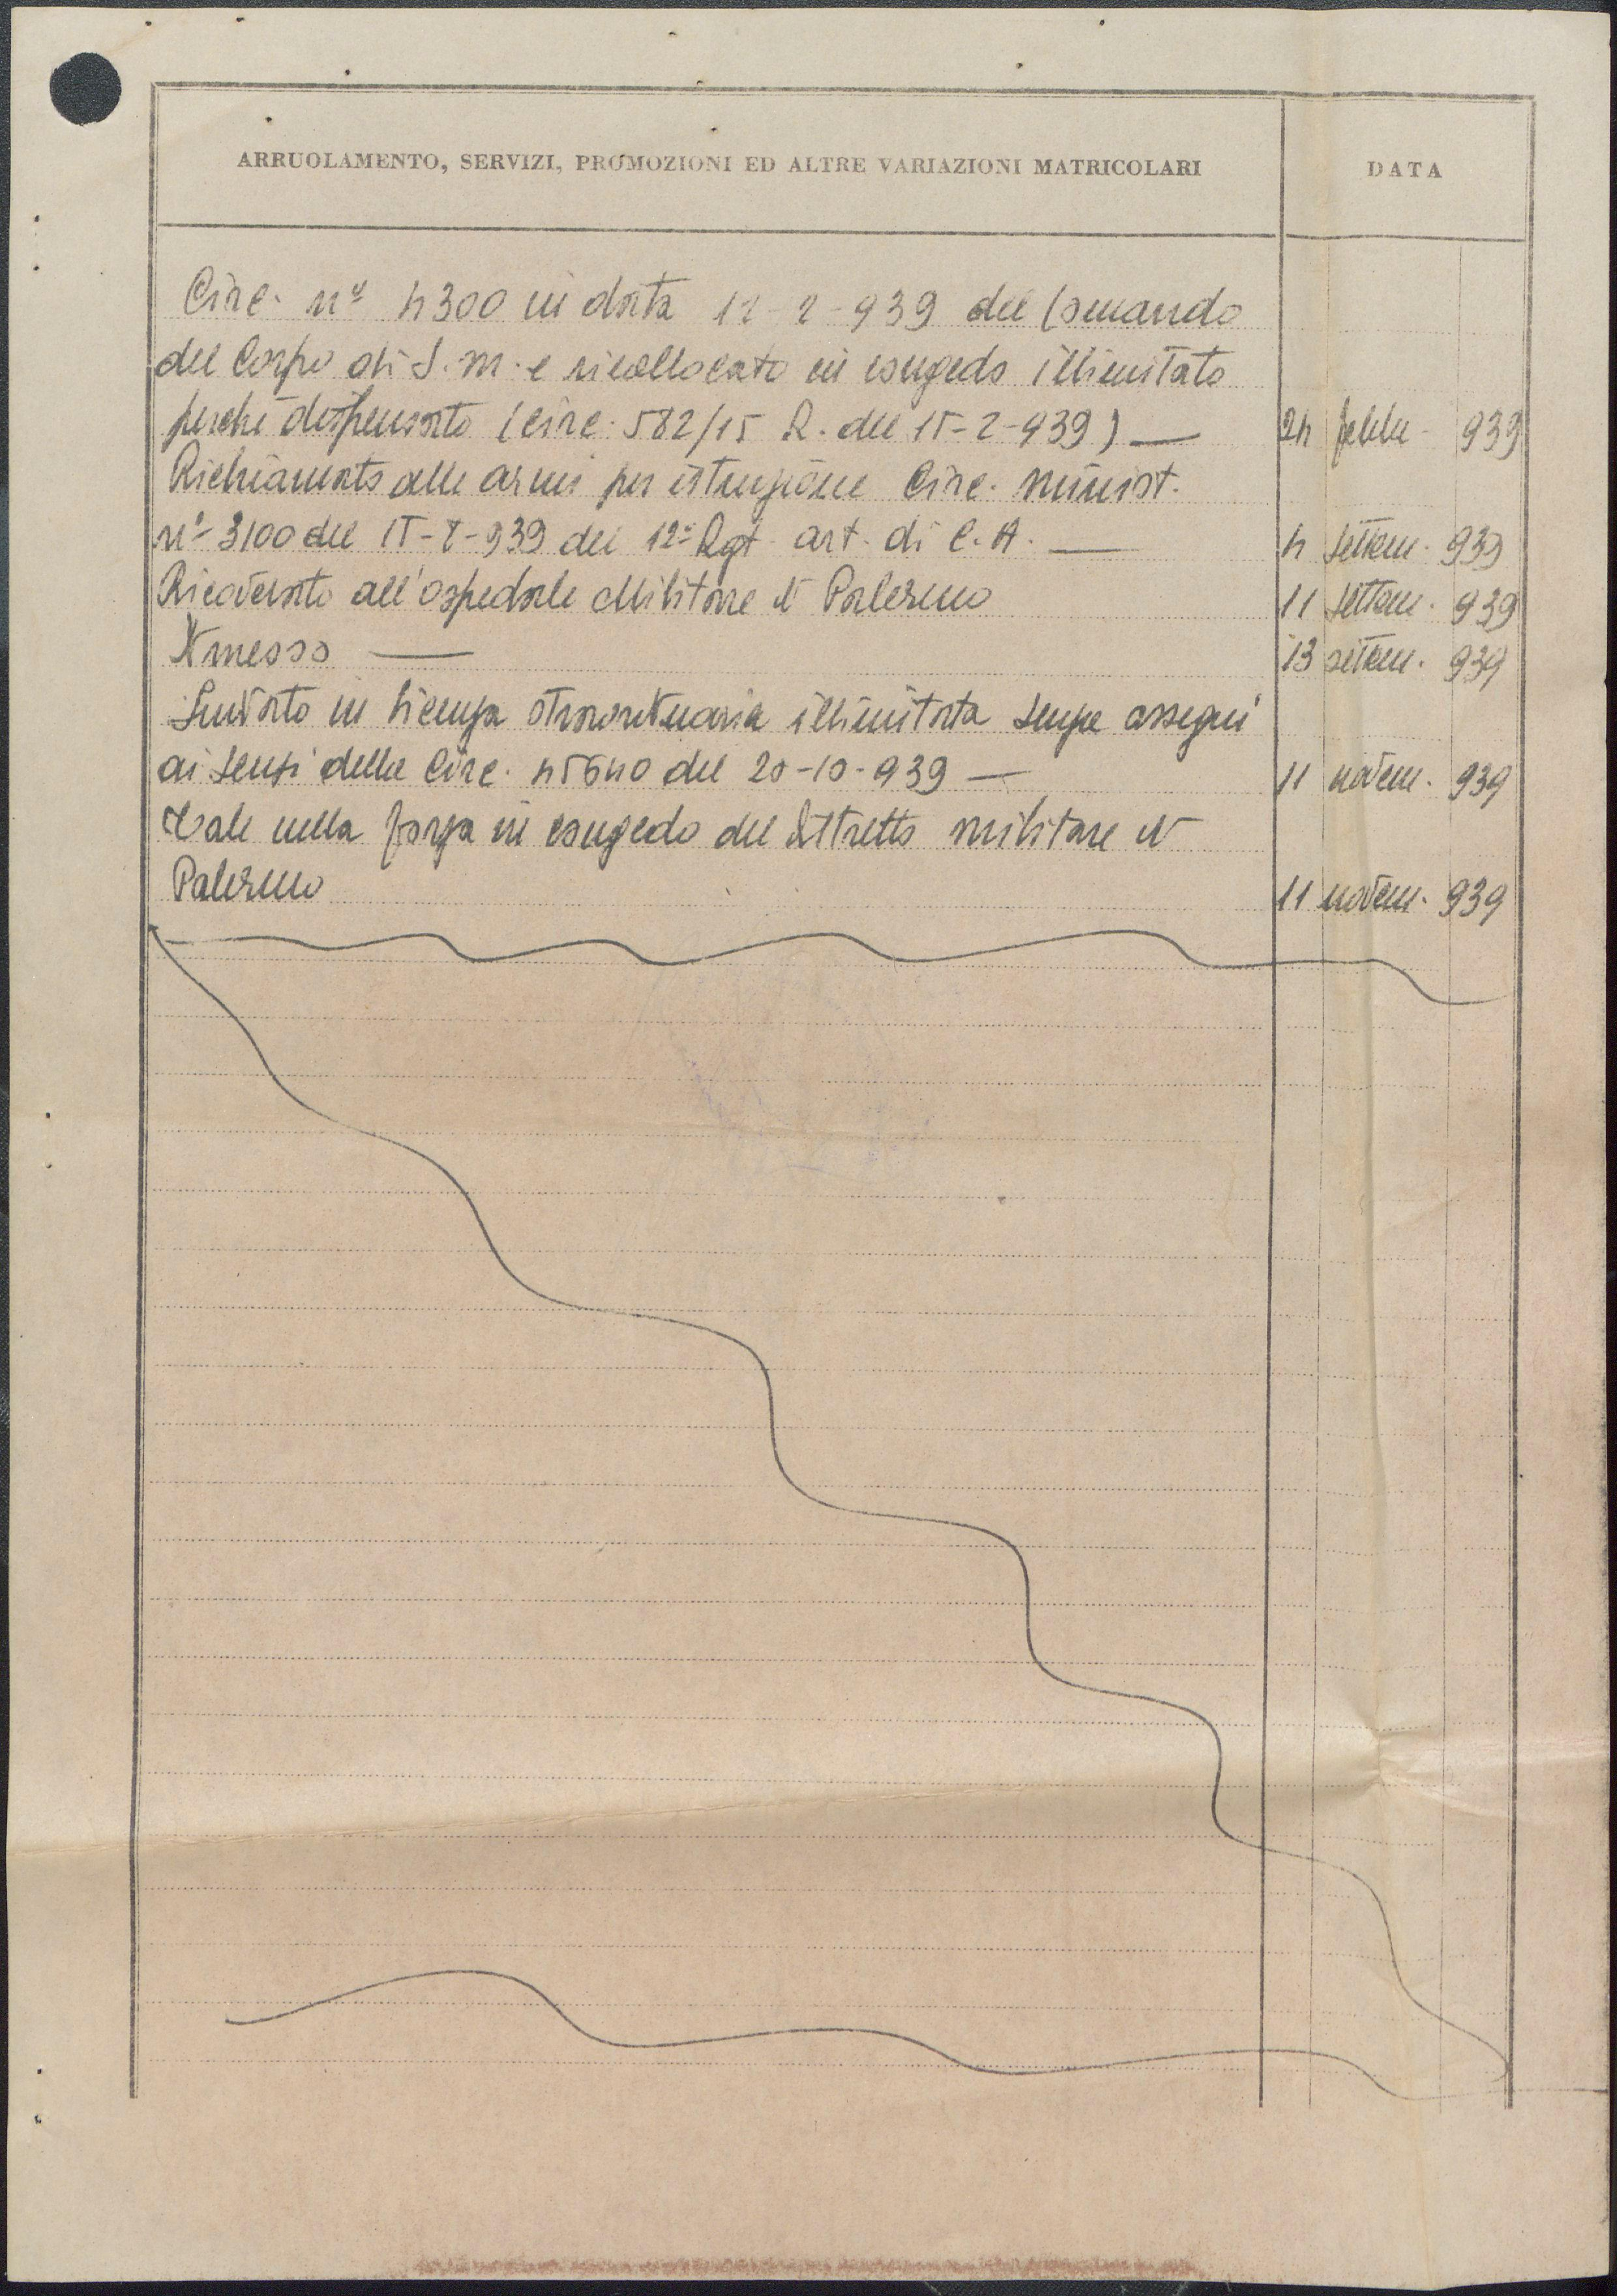 ARRUOLAMENTO, SERVIZI, PROMOZIONI ED ALTRE VARIAZIONI MATRICOLARI DATA
Circ. n° 4300 in data 12-2-939 del Comando
del Corpo di S.M. e ricollocato in congedo illimitato
perché dispensato (circ. 582/15 R. del 15-2-939) — 24 febbr. 939
Richiamato alle armi per istruzione Circ. minist.
n° 3100 del 15-8-939 del 12° Rgt. art. di C.A. — 4 settem. 939
Ricoverato all'ospedale Militare di Palermo 11 settem. 939
Dimesso — 13 settem. 939
Inviato in licenza straordinaria illimitata senza assegni
ai sensi della Circ. 45640 del 20-10-939 — 11 novem. 939
Tale nella forza in congedo del Distretto militare di
Palermo 11 novem. 939